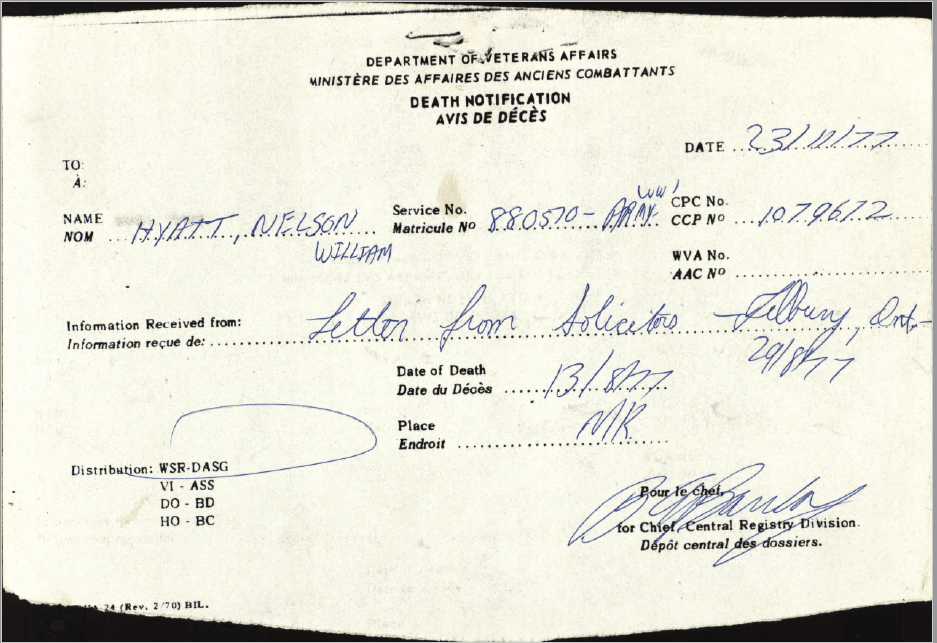 DEPARTMENT OF VETERANS AFFAIRS
MINISTÈRE DES AFFAIRES DES ANCIENS COMBATTANTS
DEATH NOTIFICATION
AVIS DE DÉCÈS
DATE 23/11/77
TO:
À:
NAME
NOM HYATT, NELSON
WILLIAM
Service No.
Matricule Nº 880570 - ARMY WW1
CPC No.
CCP Nº 1079672
WVA No.
AAC Nº
Information Received from:
Information reçue de: Letter from Solicitors - Tilbury, Ont-
29/8/77
Date of Death
Date du Décès 13/8/77
Place
Endroit NR
Distribution: WSR-DASG
VI - ASS
DO - BD
HO - BC
Pour le chef,
for Chief, Central Registry Division.
Dépôt central des dossiers.
24 (Rev. 2/70) BIL.